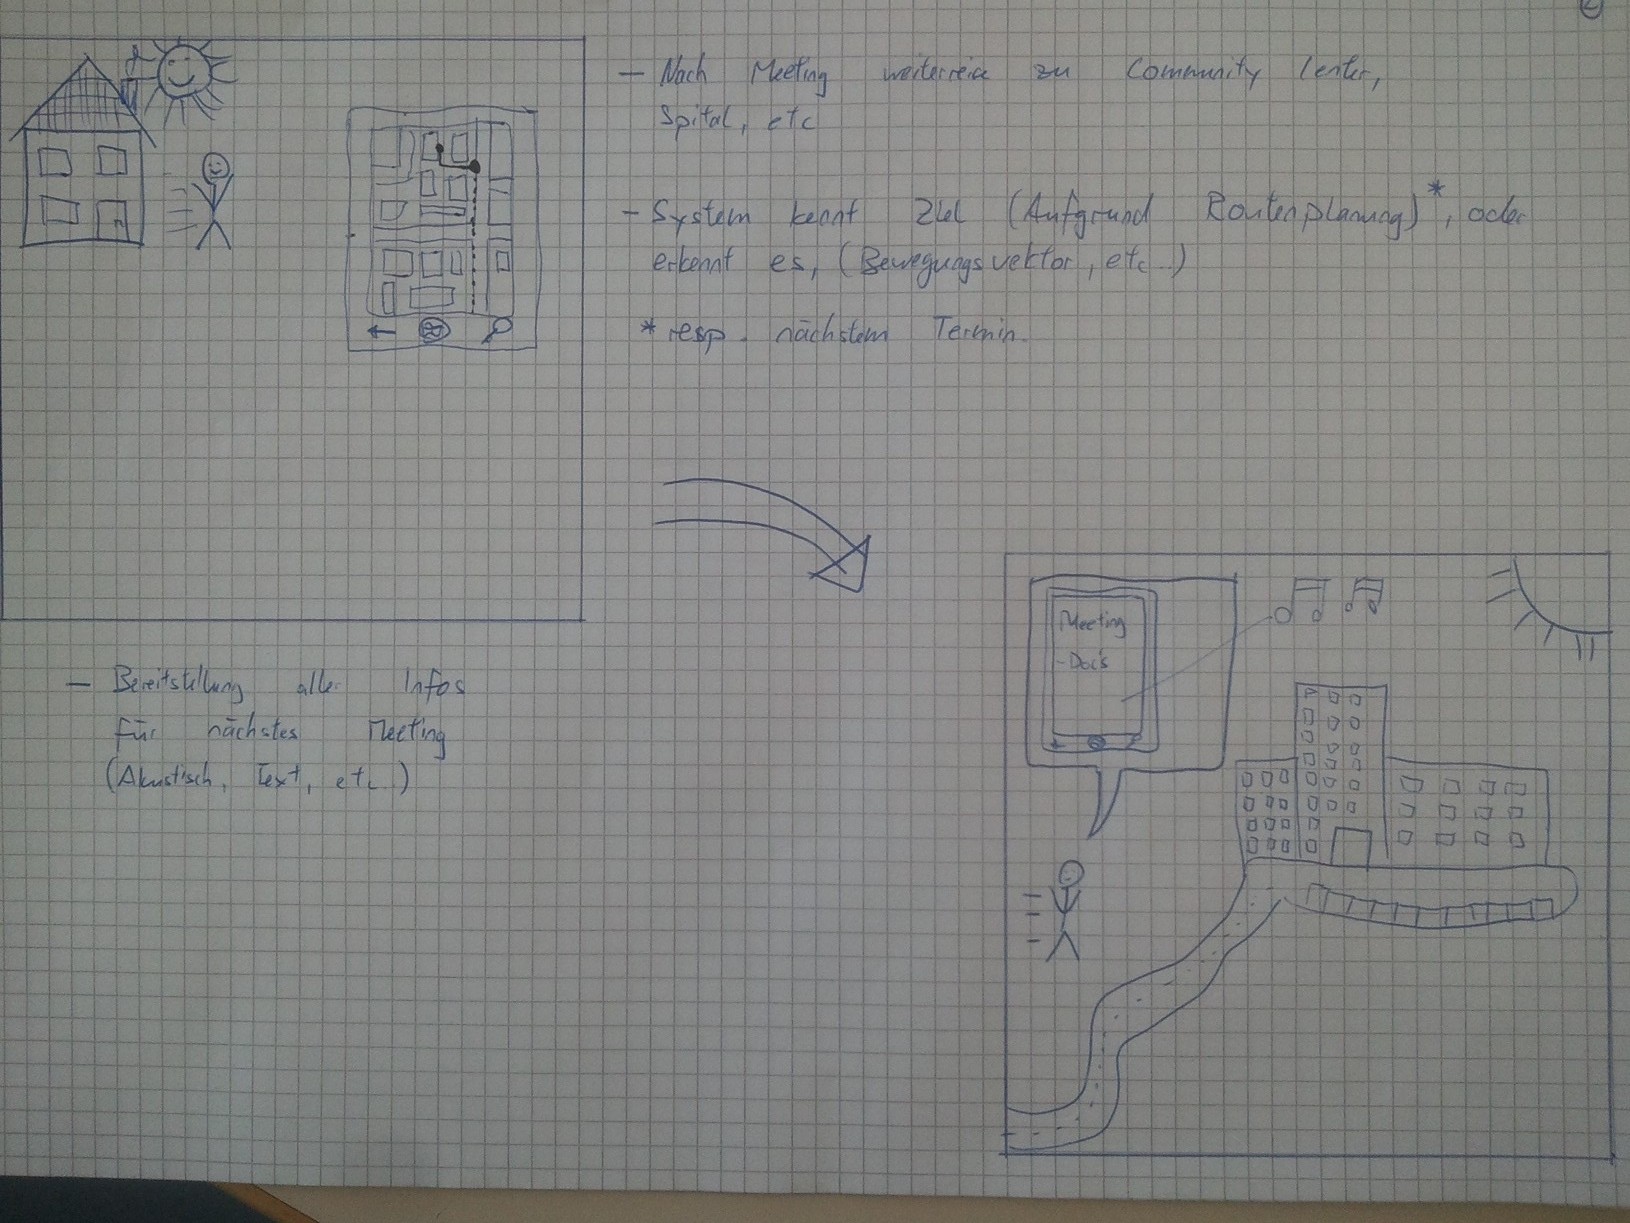 2
– Nach Meeting weiterreise zu Community Center,
Spital, etc
– System kennt Ziel (Aufgrund Routenplanung)*, oder
erkennt es, (Bewegungsvektor, etc...)
* resp. nächstem Termin.
Meeting
- Doc's
– Bereitstellung aller Infos
für nächstes Meeting
(Akustisch, Text, etc...)